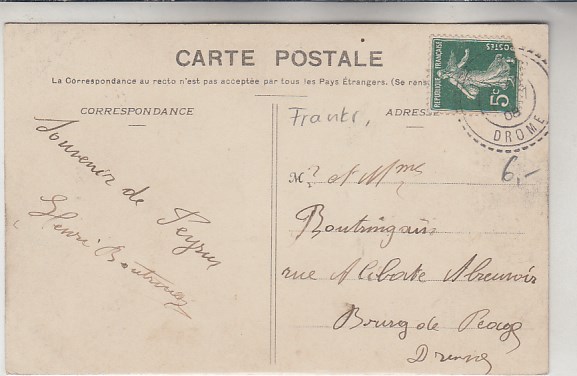 CARTE POSTALE
La Correspondance au recto n'est pas acceptée par tous les Pays Étrangers. (Se rens
CORRESPONDANCE
ADRESSE
Souvenir de
Peyrus
Henri
REPUBLIQUE FRANÇAISE
POSTES
5c
DROME
6,-
Mr et Mme
rue Aliberte Abreuvoir
Bourg de Péage
Drome